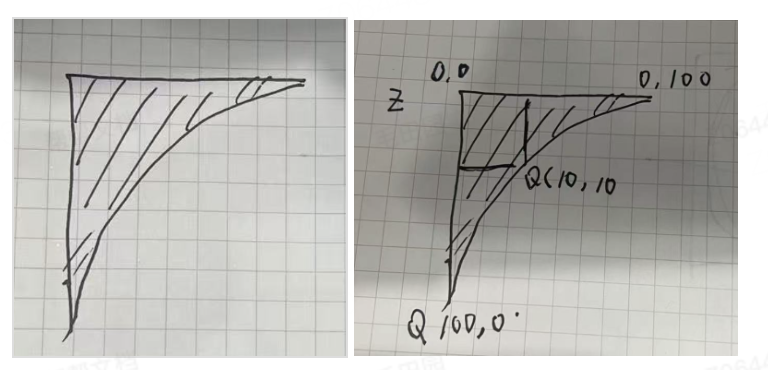 0,0
0,100
Z
Q(10,10
Q 100,0